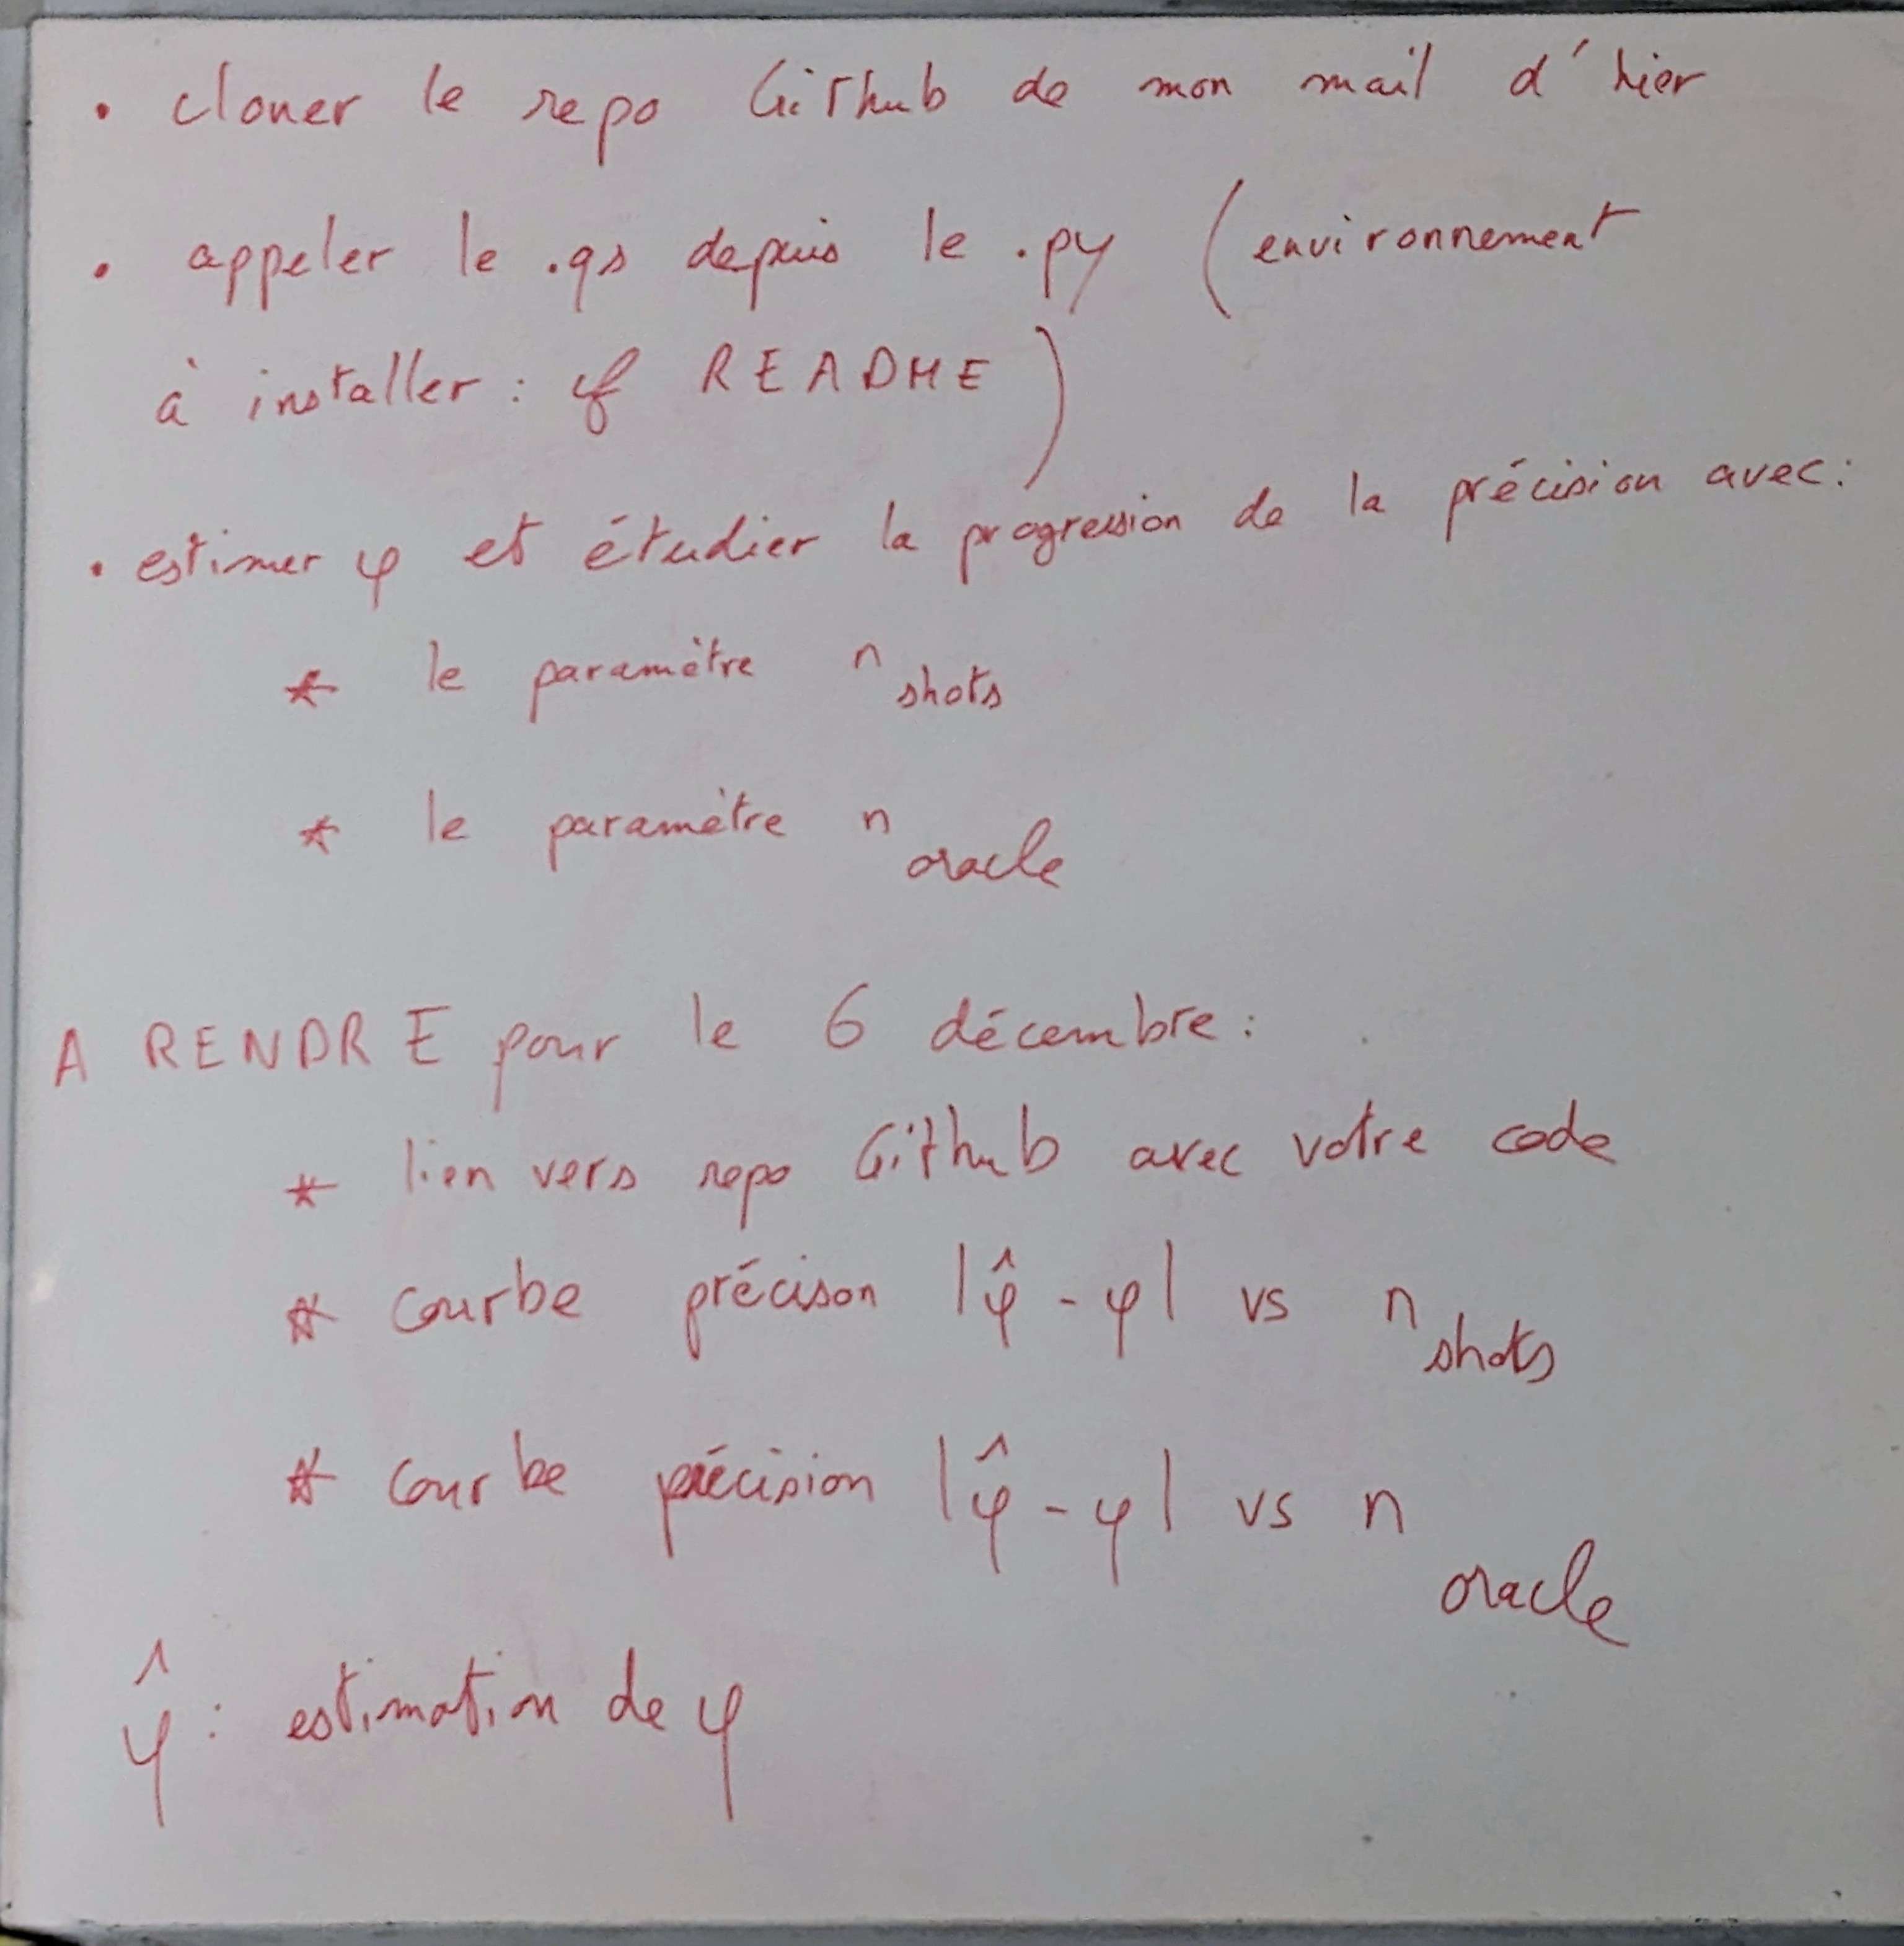 • cloner le repo Github de mon mail d'hier
• appeler le .qs depuis le .py (environnement
à installer : cf README)
• estimer φ et étudier la progression de la précision avec:
* le paramètre n shots
* le paramètre n oracle
A RENDRE pour le 6 décembre :
* lien vers repo Github avec votre code
* courbe précison |φ̂ - φ| vs n shots
* courbe précision |φ̂ - φ| vs n oracle
φ̂ : estimation de φ